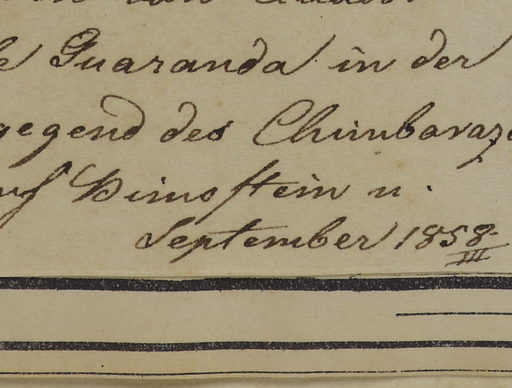 le Guaranda in der
gegend des Chimborazo
auf Bimsstein u.
September 1858
III